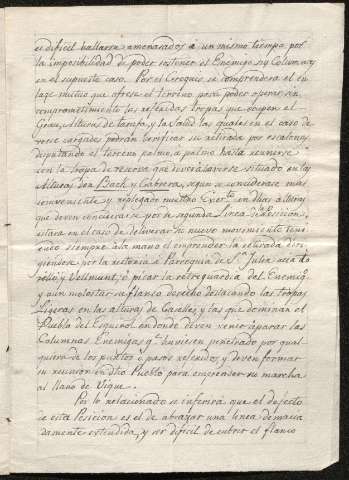 es dificil hallarse amenazados à un mismo tiempo por
la imposibilidad de poder sostener el Enemigo sus Columnas
en el supuesto caso. Por el Croquis se comprenderá el en
laze mutuo que ofrese el terreno para poder operar sin
comprometimiento las referidas tropas que ocupen el
Grau, Altura de tarafa, y la Salud las quales en el caso de
verse cargadas podrán berificar su retirada por escalones
disputando el terreno palmo, à palmo hasta reunirse
con la tropa de reserva que deverá haverse situado en las
Alturas den Bach, y Cabrera, segun se considerase mas
combeniente y replegado nuestro Exerto. en dhas alturas
que deven considerarse por la segunda Linea de la Posicion,
estara en el caso de deliverar su nuevo movimiento teni
endo siempre à la mano el emprender la retirada diri
giendose por la rectoria ò Parroquia de Sn. Julia
y Vellmunt, ò picar la retreguardia del Enemigo
y aun molestar su flanco derecho destacando las tropas
Ligeras en las alturas de Casalles y las que dominan el
Pueblo del Esquirol en donde deven venir à parar las
Columnas Enemigas qe. huviesen penetrado por qual
quiera de los puntos ò pasos referidos y deven formar
su reunion en dho Pueblo para emprender su marcha
al llano de Vique.
Por lo relacionado se inferirá que el defecto
de esta Posicion es el de abrazar una linea dema
damente estendida, y ser dificil de cubrir el flanco